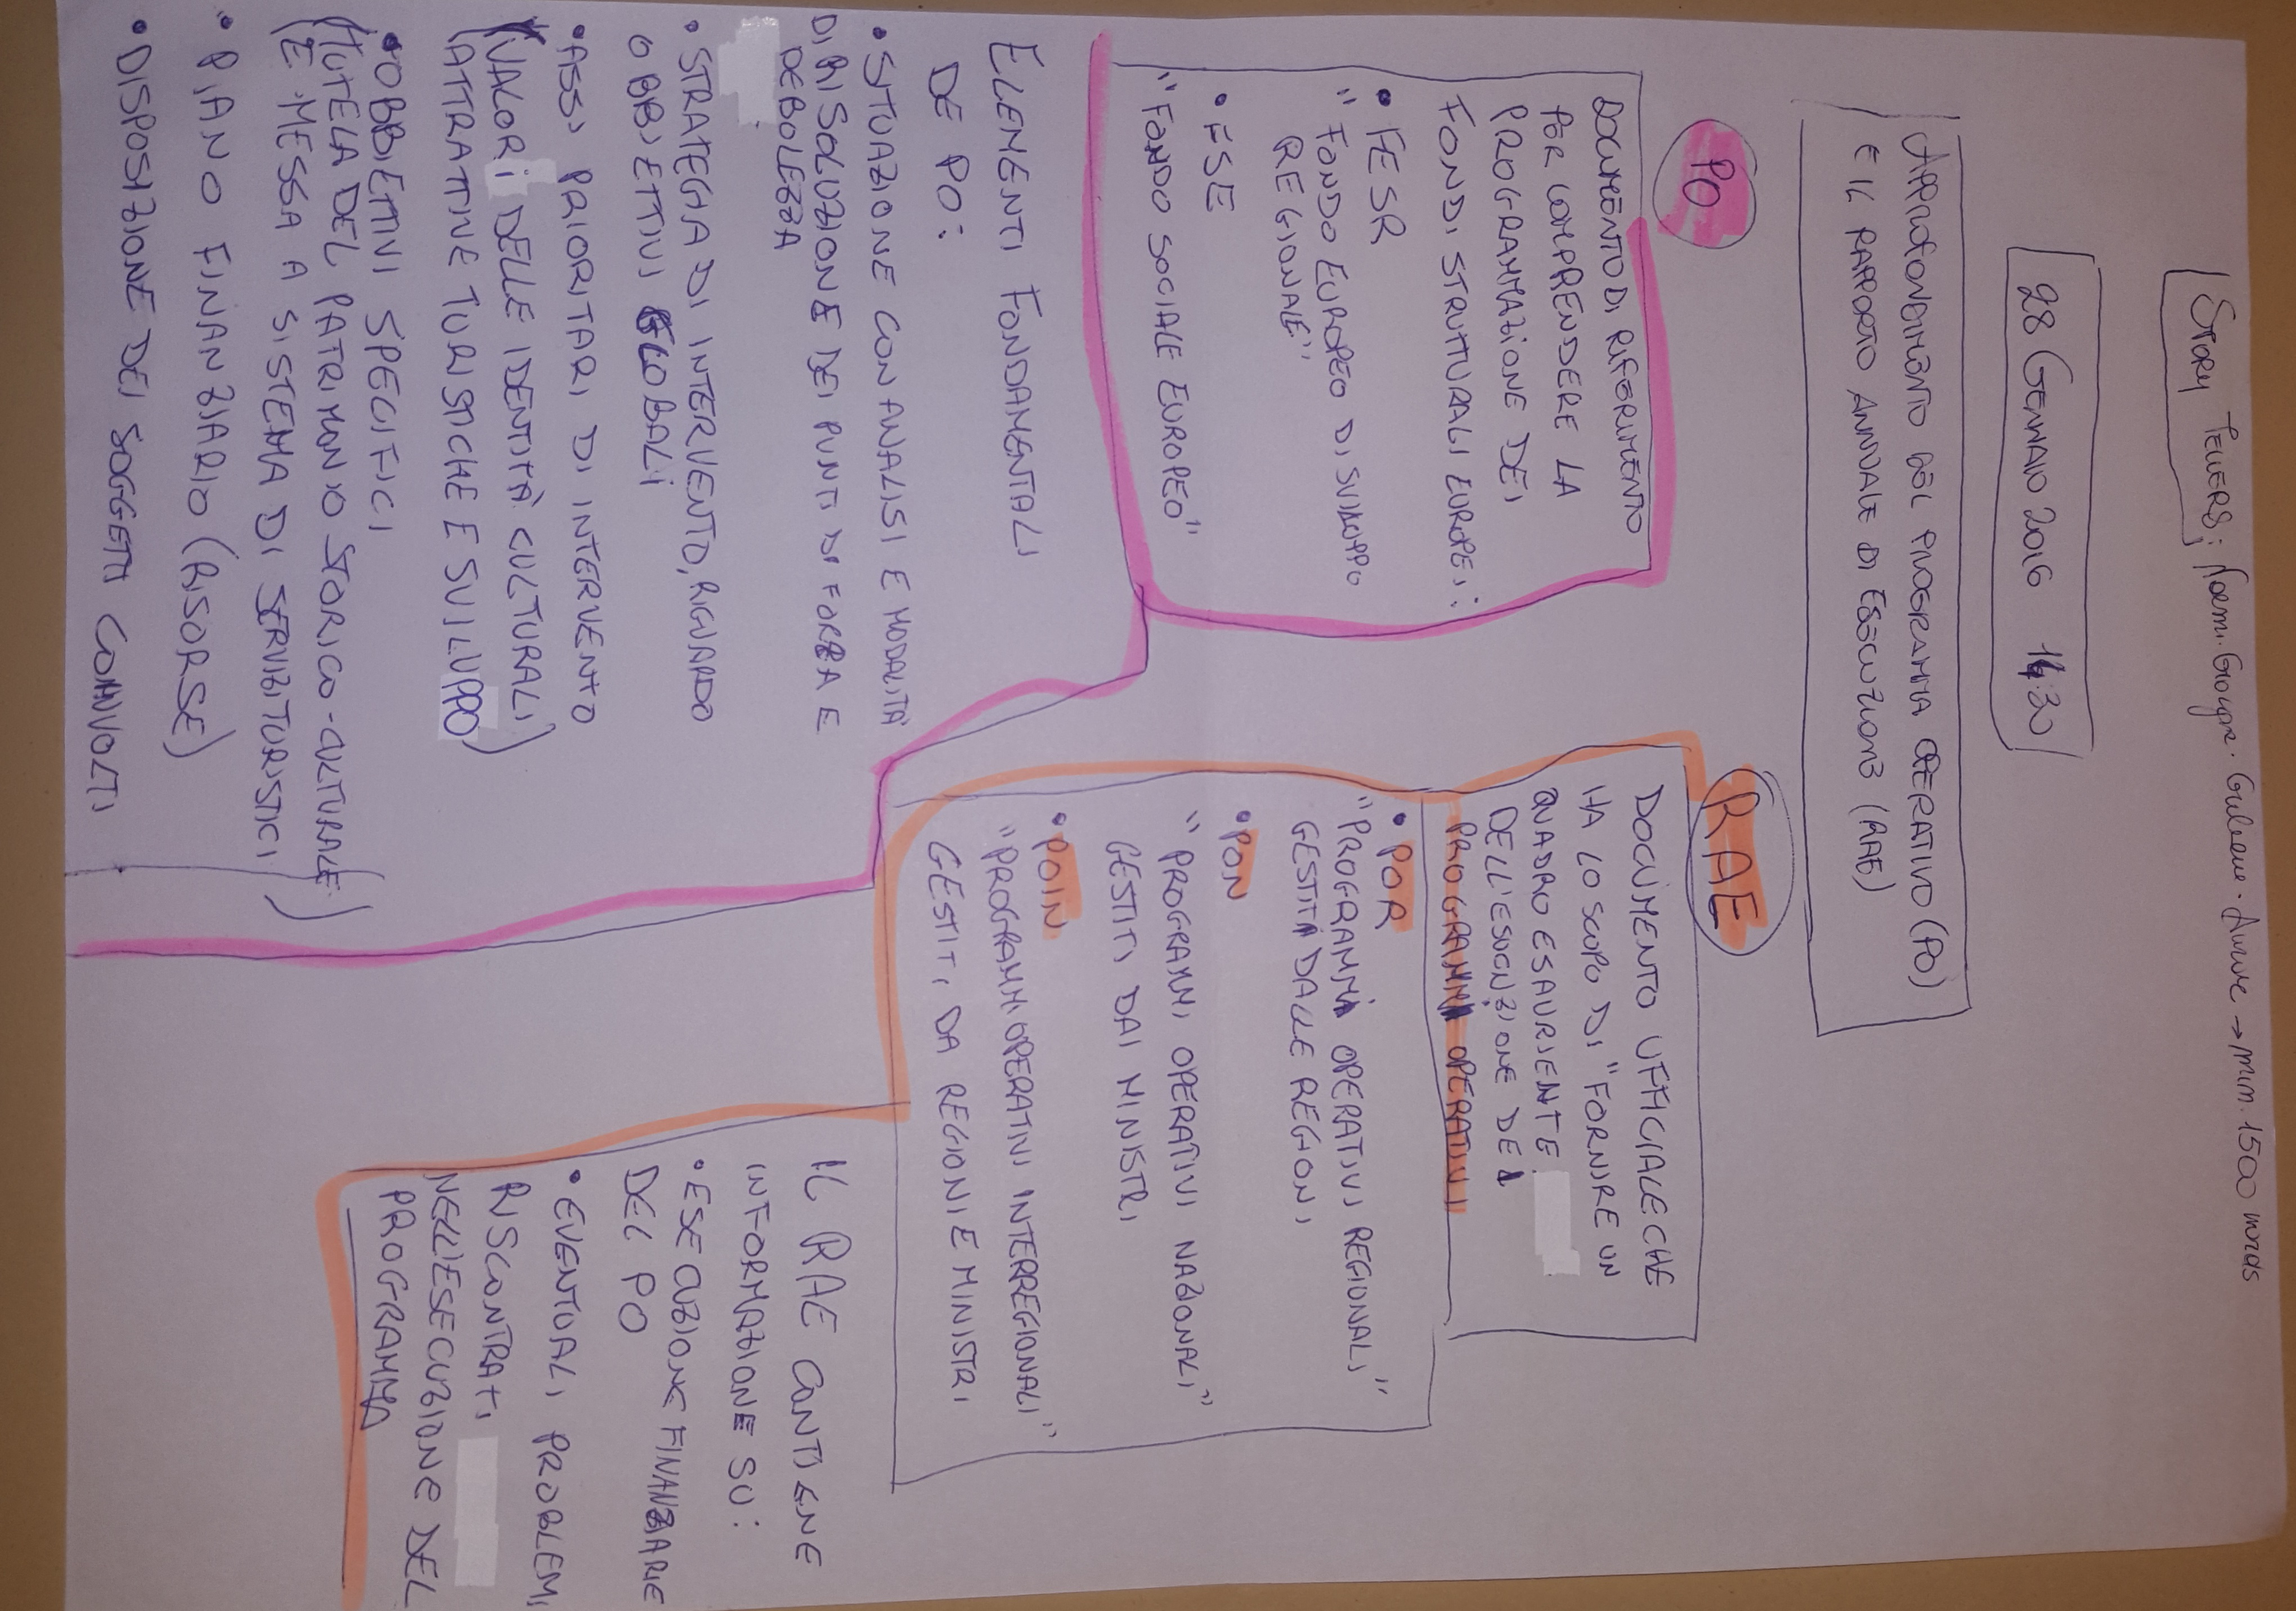 STORY TELLERS;
min. 1500 words
28 GENNAIO 2016 14:30
APPROFONDIMENTO DEL PROGRAMMA OPERATIVO (PO)
E IL RAPPORTO ANNUALE DI ESECUZIONE (RAE)
PO
DOCUMENTO DI RIFERIMENTO
PER COMPRENDERE LA
PROGRAMMAZIONE DEI
FONDI STRUTTURALI EUROPEI:
• FESR
"FONDO EUROPEO DI SVILUPPO
REGIONALE"
• FSE
"FONDO SOCIALE EUROPEO"
ELEMENTI FONDAMENTALI
DE PO:
• SITUAZIONE CON ANALISI E MODALITÀ
DI RISOLUZIONE DEI PUNTI DI FORZA E
DEBOLEZZA
• STRATEGIA DI INTERVENTO, RIGUARDO
OBBIETTIVI GLOBALI
• ASSI PRIORITARI DI INTERVENTO
(VALORI DELLE IDENTITÀ CULTURALI)
(ATTRATTIVE TURISTICHE E SVILUPPO)
• OBBIETTIVI SPECIFICI
(TUTELA DEL PATRIMONIO STORICO-CULTURALE)
(E MESSA A SISTEMA DI SERVIZI TURISTICI)
• PIANO FINANZIARIO (RISORSE)
• DISPOSIZIONE DEI SOGGETTI COINVOLTI
RAE
DOCUMENTO UFFICIALE CHE
HA LO SCOPO DI "FORNIRE UN
QUADRO ESAURIENTE
DELL'ESECUZIONE DEI
PROGRAMMI OPERATIVI
• POR
"PROGRAMMI OPERATIVI REGIONALI"
GESTITI DALLE REGIONI
• PON
"PROGRAMMI OPERATIVI NAZIONALI"
GESTITI DAI MINISTRI
• POIN
"PROGRAMMI OPERATIVI INTERREGIONALI"
GESTITI DA REGIONI E MINISTRI
IL RAE CONTIENE
INFORMAZIONE SU:
• ESECUZIONE FINANZIARIE
DEL PO
• EVENTUALI PROBLEMI
RISCONTRATI
NELL'ESECUZIONE DEL
PROGRAMMA